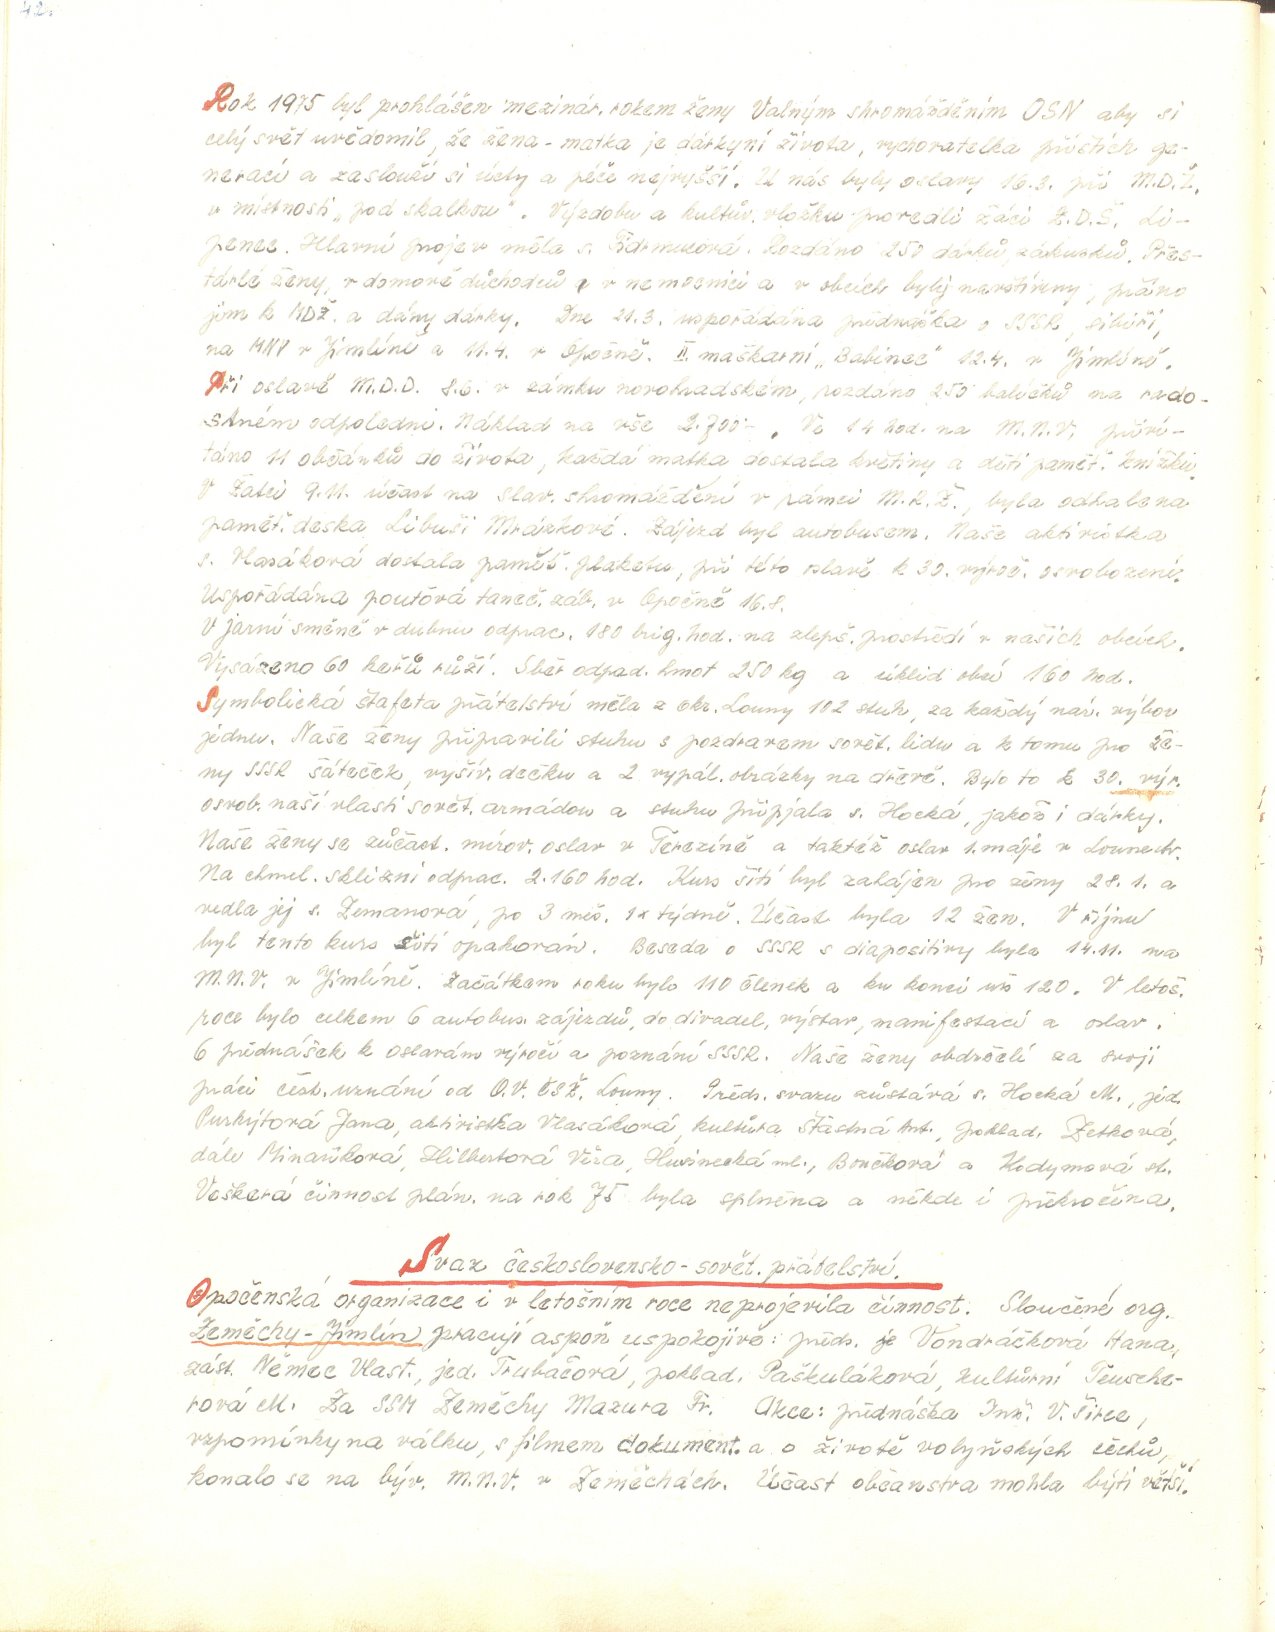 42.
Rok 1975 byl prohlášen mezinár. rokem ženy Valným shromážděním OSN aby si
celý svět uvědomil, že žena - matka je dárkyní života, vychovatelka příštích ge-
nerací a zaslouží si úcty a péče nejvyšší. U nás byly oslavy 16.3. při M.D.Ž.
v místnosti „pod skalkou". Výzdobu a kultur. vložku provedli žáci Z.D.Š. Li-
penec. Hlavní projev měla s. Rozdáno 250 dárků, zákusků. Přes-
tárlé ženy, v domově důchodců v nemocnici a v obcích byly navštíveny, přáno
jim k MDŽ. a dány dárky. Dne 21.3. uspořádána přednáška o SSSR, sibiři,
na MNV v Jimlíně a 11.4. v Opočně. II maškarní „Babinec" 12.4. v Jimlíně.
Při oslavě M.D.D. 8.6. v zámku novohradském, rozdáno 253 balíčků na rado-
stném odpoledni. Náklad na vše 2.700-. Ve 14 hod. na M.N.V. přiví-
táno 11 občánků do života, každá matka dostala květiny a děti pamět. knížku.
V Žatci 9.11. účast na slav. shromáždění v rámci M.R.Ž., byla odhalena
pamět. deska Libuši Mrázkové. Zájezd byl autobusem. Naše aktivistka
s. Vlasáková dostala pamět. plaketu, při této oslavě k 30. výroč. osvobození.
Uspořádána pouťová taneč. záb. v Opočně 16.8.
V jarní směně v dubnu odprac. 180 brig. hod. na zlepš. prostředí v našich obcích.
Vysázeno 60 keřů růží. Sběr odpad. hmot 250 kg a úklid obcí 160 hod.
Symbolická štafeta přátelství měla z okr. Louny 102 stuh, za každý nár. výbor
jednu. Naše ženy připravili stuhu s pozdravem sovět. lidu a k tomu pro že-
ny SSSR šáteček, vyšív. dečku a 2 vypál. obrázky na dřevě. Bylo to k 30. výr.
osvob. naší vlasti sovět. armádou a stuhu připjala s. Hocká, jakož i dárky.
Naše ženy se zúčast. mírov. oslav v Terezíně a taktéž oslav 1. máje v Lounech.
Na chmel. sklizni odprac. 2.160 hod. Kurs šití byl zahájen pro ženy 28.1. a
vedla jej s. Zemanová, po 3 měs. 1x týdně. Účast byla 12 žen. V říjnu
byl tento kurs šití opakován. Beseda o SSSR s diapositivy byla 14.11. na
M.N.V. v Jimlíně. Začátkem roku bylo 110 členek a ku konci už 120. V letoš.
roce bylo celkem 6 autobus. zájezdů, do divadel, výstav, manifestací a oslav.
6 přednášek k oslavám výročí a poznání SSSR. Naše ženy obdržely za svoji
práci čest. uznání od O.V. ČSŽ. Louny. Předs. svazu zůstává s. Hocká M., jed.
Purkýtová Jana, aktivistka Vlasáková, kultůra Šťastná Ant., poklad. Zetková,
dále Minaříková, Hilbertová Věra, Husinecká ml., Boučková a Kodymová st.
Veškerá činnost plán. na rok 75 byla splněna a někde i překročena.
Svaz československo - sovět. přátelství.
Opočenská organizace i v letošním roce neprojevila činnost. Sloučené org.
Zeměchy - Jimlín pracují aspoň uspokojivě: předs. je Vondráčková Hana,
zást. Němec Vlast., jed. Trubačová, poklad. Paškuláková, kultůrní Teusche-
rová M. Za SSM Zeměchy Mazura Fr. Akce: přednáška Inž. V. Širce,
vzpomínky na válku, s filmem dokument. a o životě volyňských čechů,
konalo se na býv. M.N.V. v Zeměchách. Účast občanstva mohla býti větší.